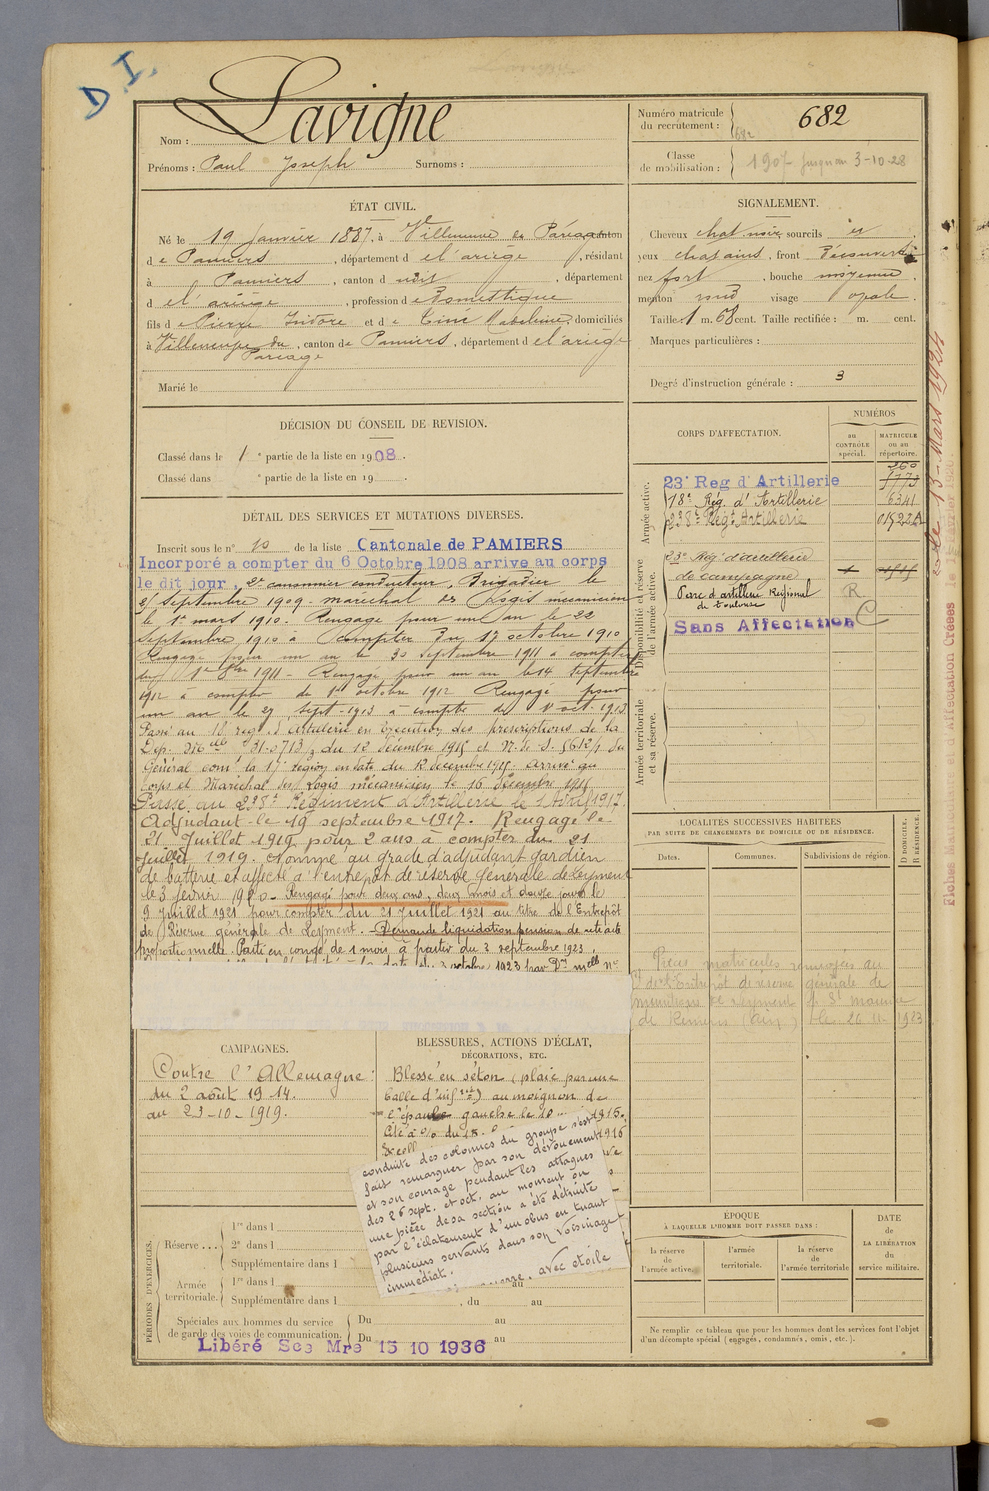 D I.
Lavigne
Nom :
Prénoms : Paul Joseph Surnoms :
Numéro matricule
du recrutement : 682
682
Classe
de mobilisation : 1907 jusqu'au 3-10-28
ÉTAT CIVIL.
Né le 19 janvier 1887, à Villeneuve du Paréage canton
de Pamiers, département de l'ariège, résidant
à Pamiers, canton d, département
de l'ariège, profession de Domestique
fils de Pierre Isidore et de Tiné Madeleine, domiciliés
à Villeneuve du Paréage, canton de Pamiers, département de l'ariège
Marié le
SIGNALEMENT.
Cheveux chat noir sourcils id
yeux chatains, front Découvert
nez fort, bouche moyenne,
menton rond visage ovale.
Taille : 1 m. 68 cent. Taille rectifiée : m. cent.
Marques particulières :
Degré d'instruction générale : 3
DÉCISION DU CONSEIL DE REVISION.
Classé dans la 1e partie de la liste en 1908.
Classé dans e partie de la liste en 19
DÉTAIL DES SERVICES ET MUTATIONS DIVERSES.
Inscrit sous le n° 10 de la liste Cantonale de PAMIERS
Incorporé a compter du 6 Octobre 1908 arrive au corps
le dit jour, 2e canonnier conducteur. Brigadier le
2/ septembre 1909 - maréchal des Logis mécanicien
le 1er mars 1910. Rengagé pour un an le 22
septembre 1910 à compter du 17 octobre 1910
Rengagé pour un an le 30 septembre 1911 à compter
du 1er 8bre 1911 - Rengagé pour un an le 14 septembre
1912 à compter du 1er octobre 1912 Rengagé pour
un an le 29 sept. 1913 à compter du 1er oct. 1913
Passé au 18 reg. d'artillerie en exécution des prescriptions de la
Dép. du 12 décembre 1915 et N. de S. du
Général comt la 17e région en date du 12 décembre 1915. Arrivé au
corps et Maréchal des Logis mécanicien le 16 décembre 1915
Passé au 238e Régiment d'Artillerie le 1 Avril 1917.
Adjudant le 19 septembre 1917. Rengagé le
21 Juillet 1919 pour 2 ans à compter du 21
Juillet 1919. Nommé au grade d'adjudant gardien
de batterie et affecté à l'entrepôt de réserve Générale de Leyment
le 3 février 1920 - Rengagé pour deux ans, deux mois et douze jours le
9 Juillet 1921 pour compter du 21 Juillet 1921 au titre de l'Entrepôt
de Réserve générale de Leyment. - Demande liquidation pension de retraite
proportionnelle. Parti en congé de 1 mois à partir du 3 septembre 1923.
octobre 1923 par Dn melle n°
CORPS D'AFFECTATION.
NUMÉROS
au
CONTRÔLE
spécial.
MATRICULE
ou au
répertoire.
Armée active.
23e Reg d'Artillerie
18e Rég. d'Artillerie 6341
238e Régt Artillerie 01522A
Disponibilité et réserve
de l'armée active.
23e Rég. d'artillerie
de campagne
Parc d'artillerie Régional R.
de Toulouse
Sans Affectation C
Armée territoriale
et sa réserve.
le 13 - Mars 1924
Fiches Matricule et Affectation Créées le Février 1926
LOCALITÉS SUCCESSIVES HABITÉES
PAR SUITE DE CHANGEMENTS DE DOMICILE OU DE RÉSIDENCE.
D DOMICILE.
R RÉSIDENCE.
Dates. Communes. Subdivisions de région.
Pièces matricules renvoyées au
de l'Entrepôt de réserve générale de
munitions de Leyment par St Maurice
de Remens (Ain) le 26 11 1923
CAMPAGNES.
Contre l'Allemagne :
du 2 août 1914.
au 23-10-1919.
BLESSURES, ACTIONS D'ÉCLAT,
DÉCORATIONS, ETC.
Blessé en séton (plaie par une
balle d'infrie) au moignon de
l'épaule gauche le 10 1915.
Cité à l'o/o du
conduite des colonnes du groupe s'est
fait remarquer par son dévouement
et son courage pendant les attaques
des 26 sept. et oct. au moment où
une pièce de sa section a été détruite
par l'éclatement d'un obus en tuant
plusieurs servants dans son voisinage
immédiat.
guerre, avec étoile
PÉRIODES D'EXERCICES.
Réserve ...
1re dans l
2e dans l
Supplémentaire dans l
Armée
territoriale.
1re dans l au
Supplémentaire dans l , du au
Spéciales aux hommes du service
de garde des voies de communication.
Du au
Du au
Libéré Sce Mre 15 10 1936
ÉPOQUE
À LAQUELLE L'HOMME DOIT PASSER DANS :
la réserve
de
l'armée active.
l'armée
territoriale.
la réserve
de
l'armée territoriale
DATE
de
LA LIBÉRATION
du
service militaire.
Ne remplir ce tableau que pour les hommes dont les services font l'objet
d'un décompte spécial (engagés, condamnés, omis, etc.).